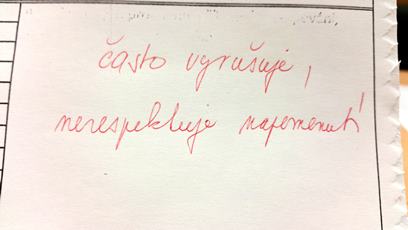 často vyrušuje,
nerespektuje napomenutí